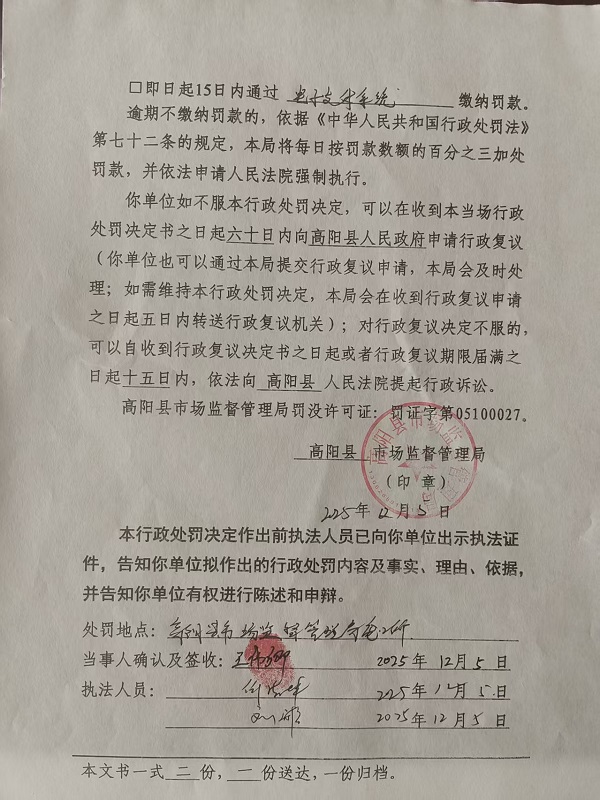 □即日起15日内通过 电子支付系统 缴纳罚款。
逾期不缴纳罚款的，依据《中华人民共和国行政处罚法》
第七十二条的规定，本局将每日按罚款数额的百分之三加处
罚款，并依法申请人民法院强制执行。
你单位如不服本行政处罚决定，可以在收到本当场行政
处罚决定书之日起六十日内向高阳县人民政府申请行政复议
（你单位也可以通过本局提交行政复议申请，本局会及时处
理；如需维持本行政处罚决定，本局会在收到行政复议申请
之日起五日内转送行政复议机关）；对行政复议决定不服的，
可以自收到行政复议决定书之日起或者行政复议期限届满之
日起十五日内，依法向 高阳县 人民法院提起行政诉讼。
高阳县市场监督管理局罚没许可证：罚证字第05100027。
高阳县 市场监督管理局
（印章）
2025年12月5日
本行政处罚决定作出前执法人员已向你单位出示执法证
件，告知你单位拟作出的行政处罚内容及事实、理由、依据，
并告知你单位有权进行陈述和申辩。
处罚地点：高阳县市场监督管理局
当事人确认及签收： 2025年12月5日
执法人员： 2025年12月5日
2025年12月5日
本文书一式 二 份，一 份送达，一份归档。